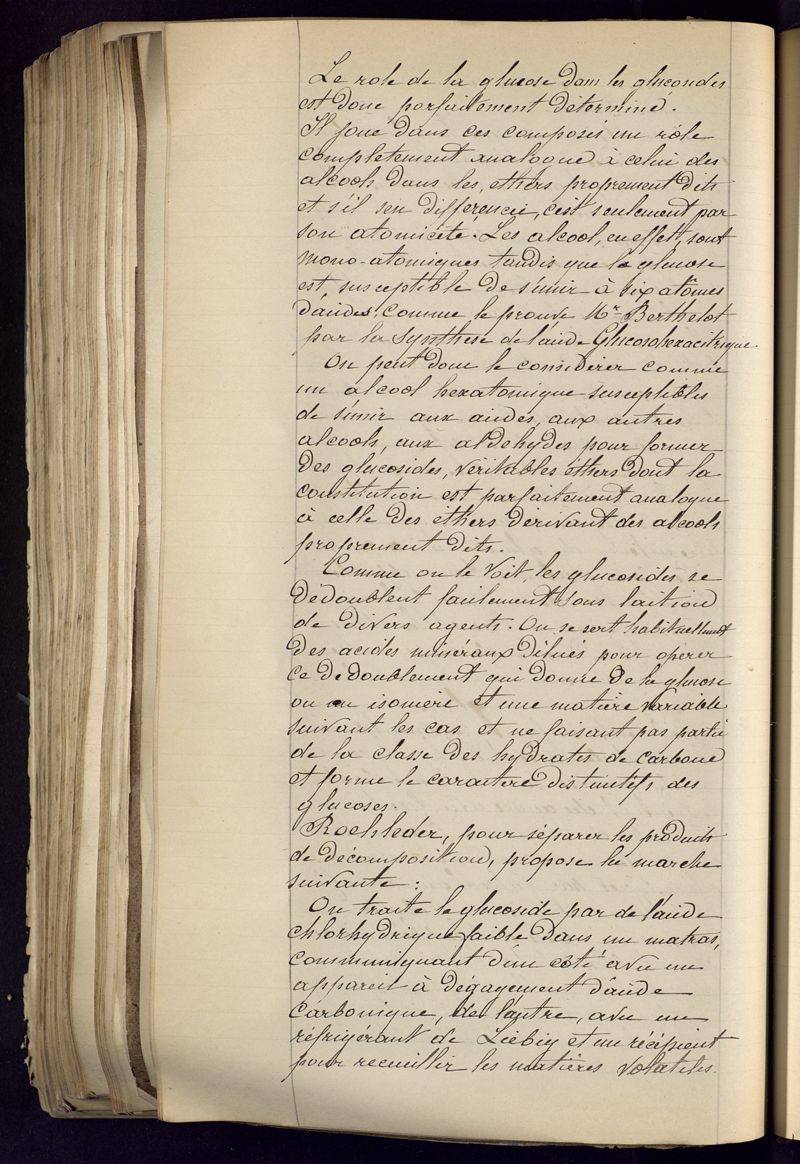 Le role de la glucose dans les glucosides
est donc parfaitement déterminé.
Il joue dans ces composés un rôle
completement analogue à celui des
alcools dans les ethers proprement dits
et s'il s'en differencie, c'est seulement par
son atomicité. Les alcool, en effet, sont
mono-atomiques tandis que la glucose
est, susceptible de s'unir à six atômes
d'acides, comme le prouve Mr Berthelot
par la synthese de l'acide Glucosohexacitrique
On peut donc le considérer comme
un alcool hexatomique susceptibles
de s'unir aux acides, aux autres
alcools, aux aldehydes pour former
des glucosides, véritables éthers dont la
constitution est parfaitement analogue
à celle des éthers dérivant des alcools
proprement dits.
Comme on le voit, les glucosides se
dédoublent facilement sous l'action
de divers agents. On se sert habituellement
des acides minéraux dilués pour opérer
ce dedoublement qui donne de la glucose
ou un isomère et une matière variable
suivant les cas et ne faisant pas partie
de la classe des hydrates de carbone
et forme le caractère distinctifs des
glucoses.
Rochleder, pour séparer les produits
de décomposition, propose la marche
suivante :
On traite le glucoside par de l'acide
chlorhydrique faible dans un matras,
communiquant d'un coté avec un
appareil à dégagement d'acide
carbonique, de l'autre, avec un
réfrigérant de Liebig et un récipient
pour recueillir les matières volatiles.